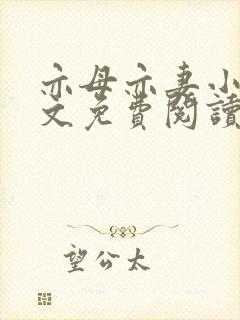 亦母亦妻小
文免費閱讀
望公太